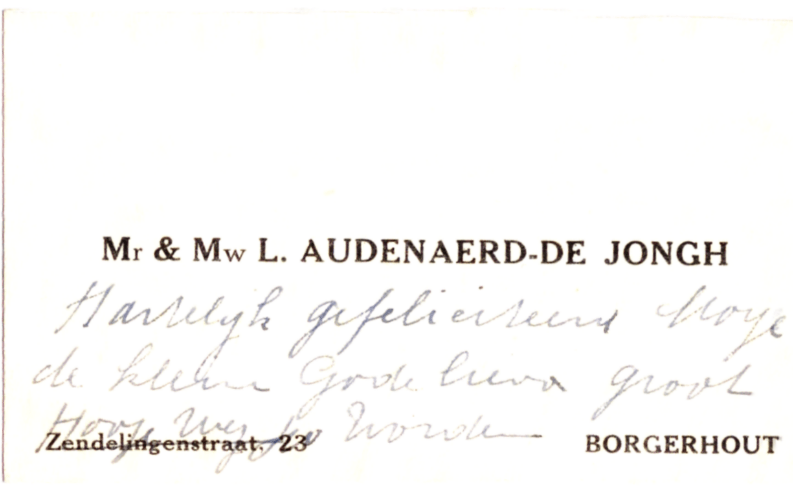 Mr & Mw L. AUDENAERD-DE JONGH
Hartelijk gefeliciteerd Moge
de kleine Godelieva groot
Worden
Zendelingenstraat. 23 BORGERHOUT